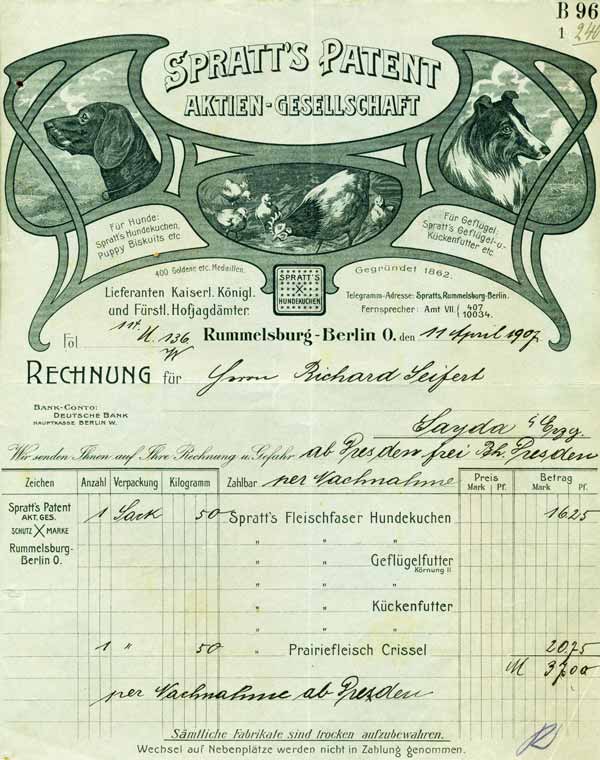 B 96
1 240
SPRATT'S PATENT
AKTIEN-GESELLSCHAFT
Für Hunde:
Spratt's Hundekuchen,
Puppy Biskuits etc
Für Geflügel:
Spratt's Geflügel-u-
Kückenfutter etc.
400 Goldene etc. Medaillen.
SPRATT'S
X
HUNDEKUCHEN
Gegründet 1862.
Lieferanten Kaiserl. Königl.
und Fürstl. Hofjagdämter.
Telegramm-Adresse: Spratts, Rummelsburg-Berlin.
Fernsprecher: Amt VII. { 407
10034.
Fol. U. 136.
Rummelsburg-Berlin O. den 11 April 1907
RECHNUNG für Herrn Richard Seifert
BANK-CONTO:
DEUTSCHE BANK
HAUPTKASSE BERLIN W.
Sayda i/ Erzg.
Wir senden Ihnen auf Ihre Rechnung u. Gefahr ab Dresden frei Bh. Dresden
Zeichen Anzahl Verpackung Kilogramm Zahlbar per Nachnahme Preis Mark Pf. Betrag Mark Pf.
Spratt's Patent
AKT. GES.
SCHUTZ X MARKE
Rummelsburg-
Berlin O.
1 Sack 50 Spratt's Fleischfaser Hundekuchen 16 25
" " "
" Geflügelfutter
Körnung II
" " "
" Kückenfutter
" " "
1 " 50 " Prairiefleisch Crissel 20 75
M 37,00
per Nachnahme ab Dresden
Sämtliche Fabrikate sind trocken aufzubewahren.
Wechsel auf Nebenplätze werden nicht in Zahlung genommen.